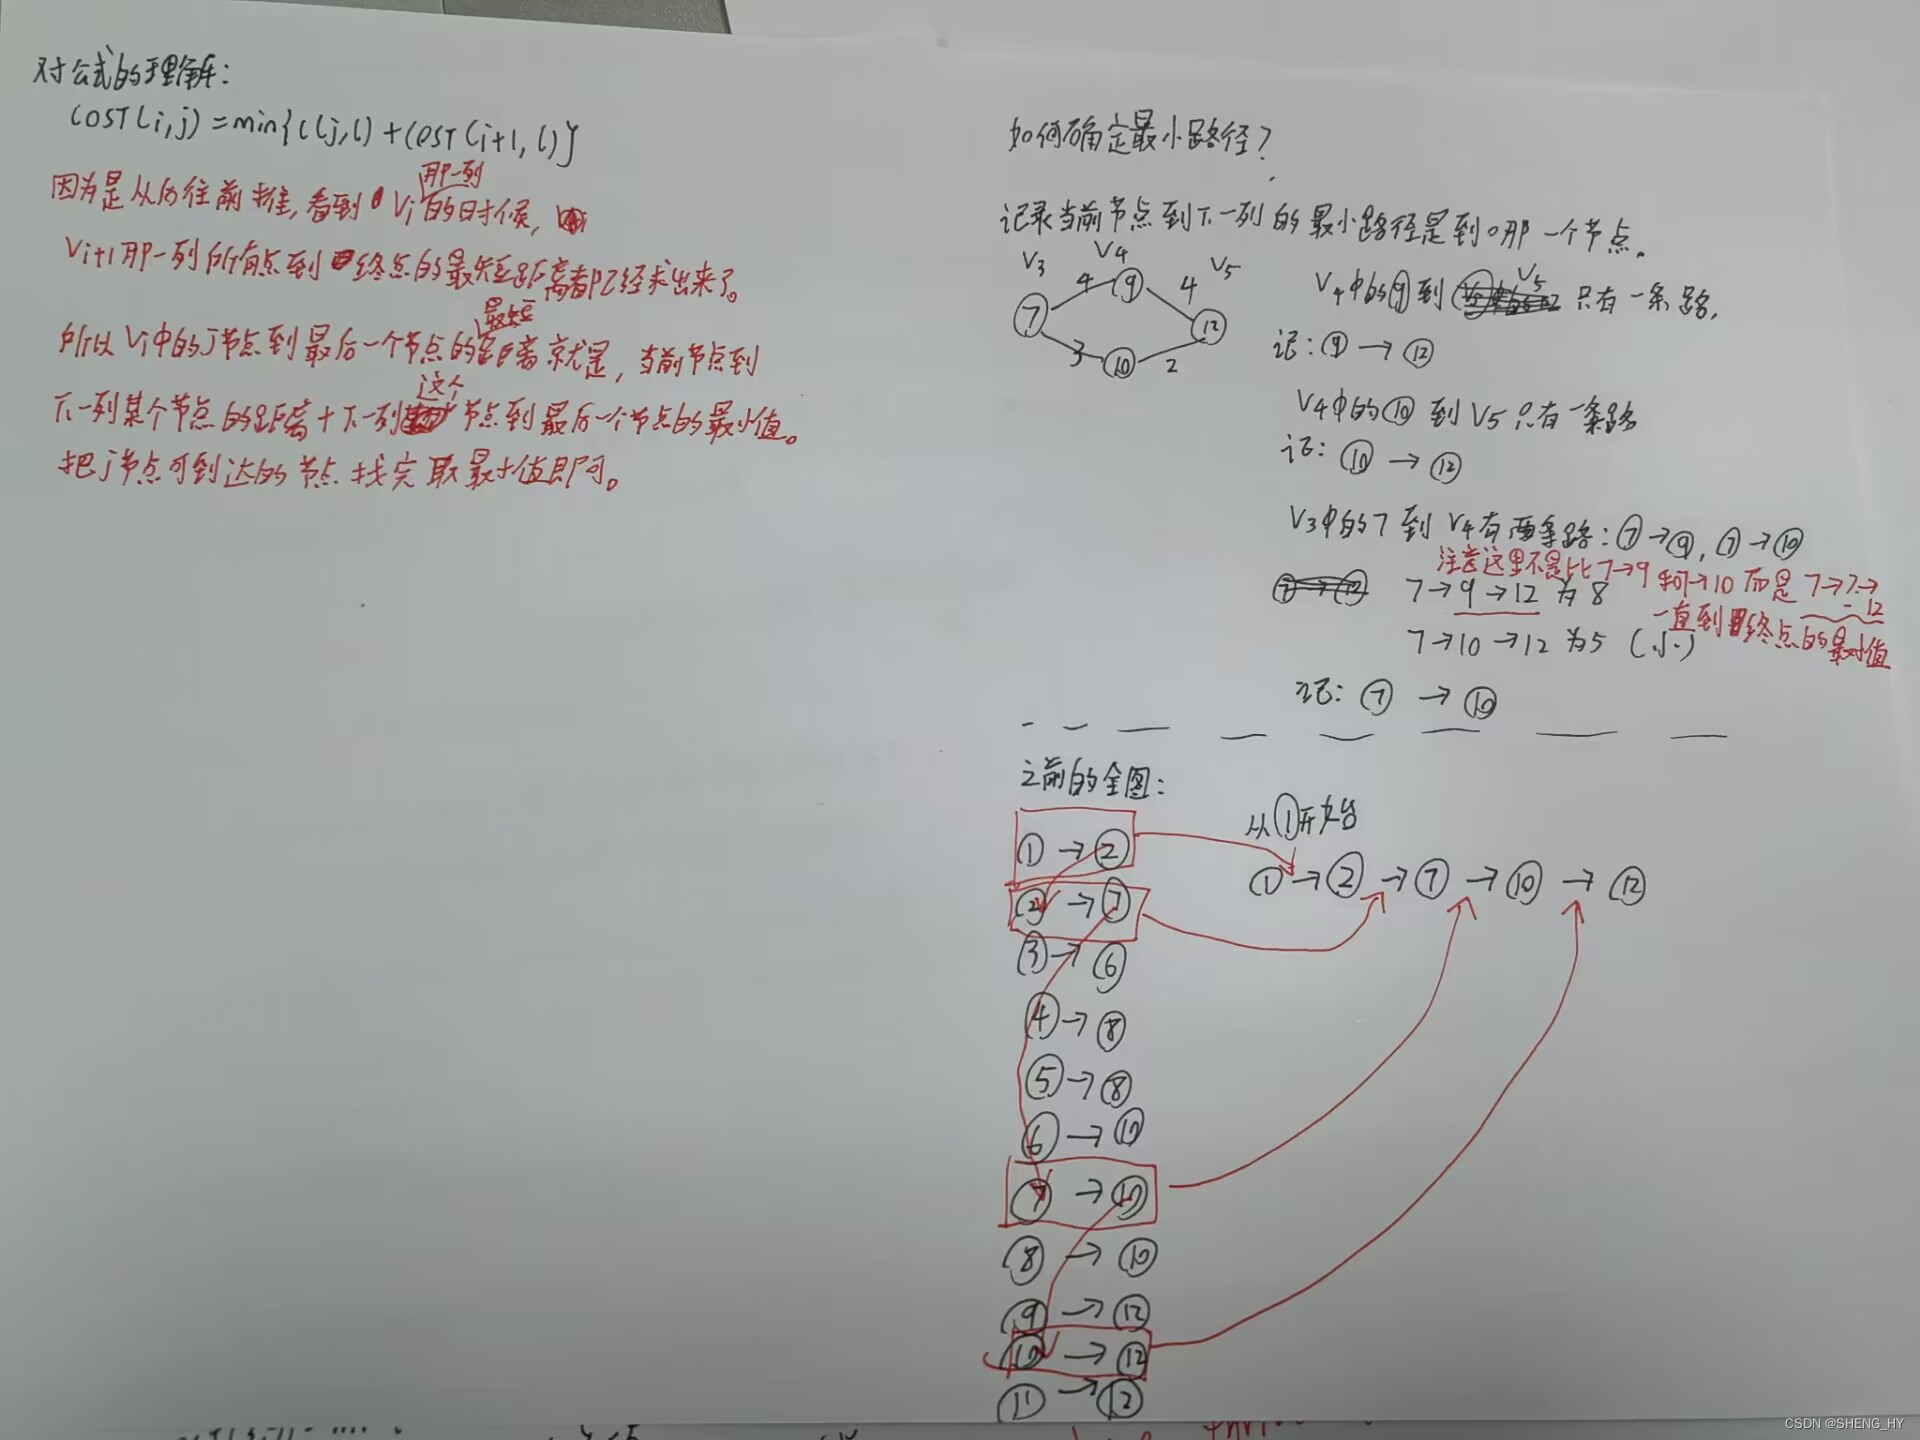 对公式的理解:
COST(i,j)=min{c(j,l)+COST(i+1,l)}
因为是从后往前推,看到Vi那一列的时候,
Vi+1那一列所有点到终点的最短距离都已经求出来了。
所以Vi中的j节点到最后一个节点的最短距离就是,当前节点到
下一列某个节点的距离+下一列这个节点到最后一个节点的最小值。
把j节点可到达的节点找完取最小值即可。
如何确定最小路径?
记录当前节点到下一列的最小路径是到哪一个节点。
V3 V4 V5
7 4 9 4 12
3 10 2
V4中的⑨到V5只有一条路,
记:⑨→⑫
V4中的⑩到V5只有一条路
记:⑩→⑫
V3中的7到V4有两条路:⑦→⑨,⑦→⑩
注意这里不是比7→9和7→10而是7→?→
-12
7→9→12为8
一直到终点的最小值
7→10→12为5(小)
记:⑦→⑩
之前的全图:
从①开始
①→②
①→②→⑦→⑩→⑫
②→⑦
③→⑥
④→⑧
⑤→⑧
⑥→⑩
⑦→⑩
⑧→⑩
⑨→⑫
⑩→⑫
⑪→⑫
CSDN @SHENG_HY